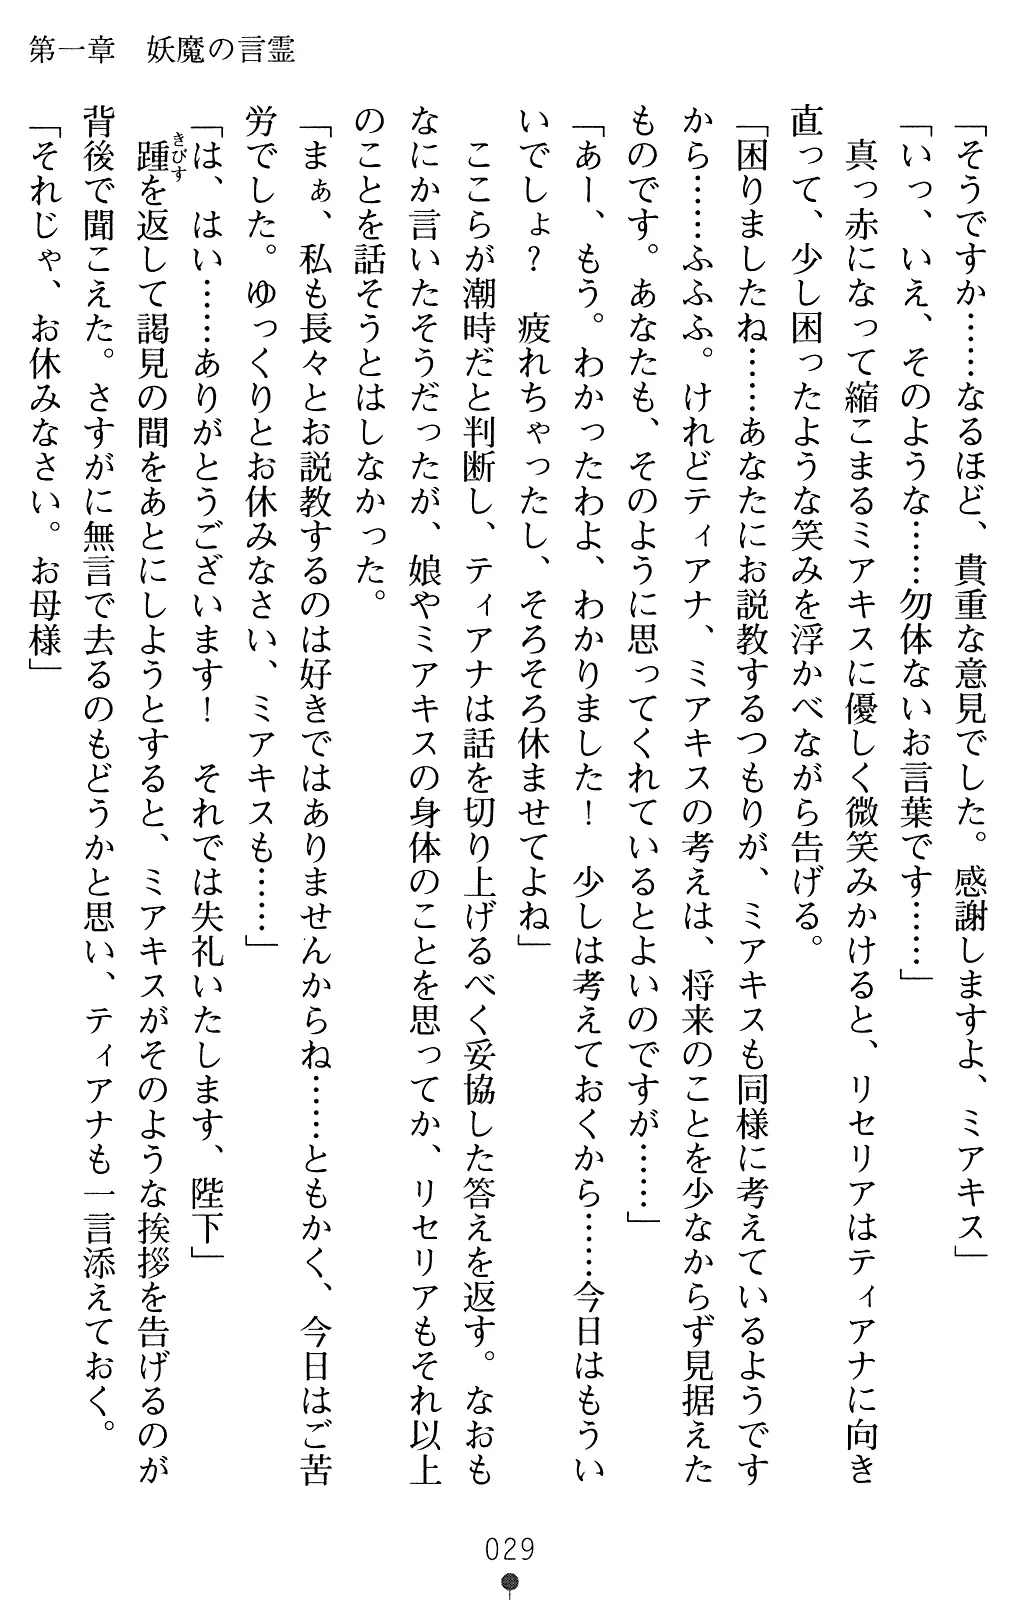 第一章　妖魔の言霊
「そうですか……なるほど、貴重な意見でした。感謝しますよ、ミアキス」
「いっ、いえ、そのような……勿体ないお言葉です……」
　真っ赤になって縮こまるミアキスに優しく微笑みかけると、リセリアはティアナに向き
直って、少し困ったような笑みを浮かべながら告げる。
「困りましたね……あなたにお説教するつもりが、ミアキスも同様に考えているようです
から……ふふふ。けれどティアナ、ミアキスの考えは、将来のことを少なからず見据えた
ものです。あなたも、そのように思ってくれているとよいのですが……」
「あー、もう。わかったわよ、わかりました！　少しは考えておくから……今日はもうい
いでしょ？　疲れちゃったし、そろそろ休ませてよね」
　ここらが潮時だと判断し、ティアナは話を切り上げるべく妥協した答えを返す。なおも
なにか言いたそうだったが、娘やミアキスの身体のことを思ってか、リセリアもそれ以上
のことを話そうとはしなかった。
「まぁ、私も長々とお説教するのは好きではありませんからね……ともかく、今日はご苦
労でした。ゆっくりとお休みなさい、ミアキスも……」
「は、はい……ありがとうございます！　それでは失礼いたします、陛下」
　踵きびすを返して謁見の間をあとにしようとすると、ミアキスがそのような挨拶を告げるのが
背後で聞こえた。さすがに無言で去るのもどうかと思い、ティアナも一言添えておく。
「それじゃ、お休みなさい。お母様」
029